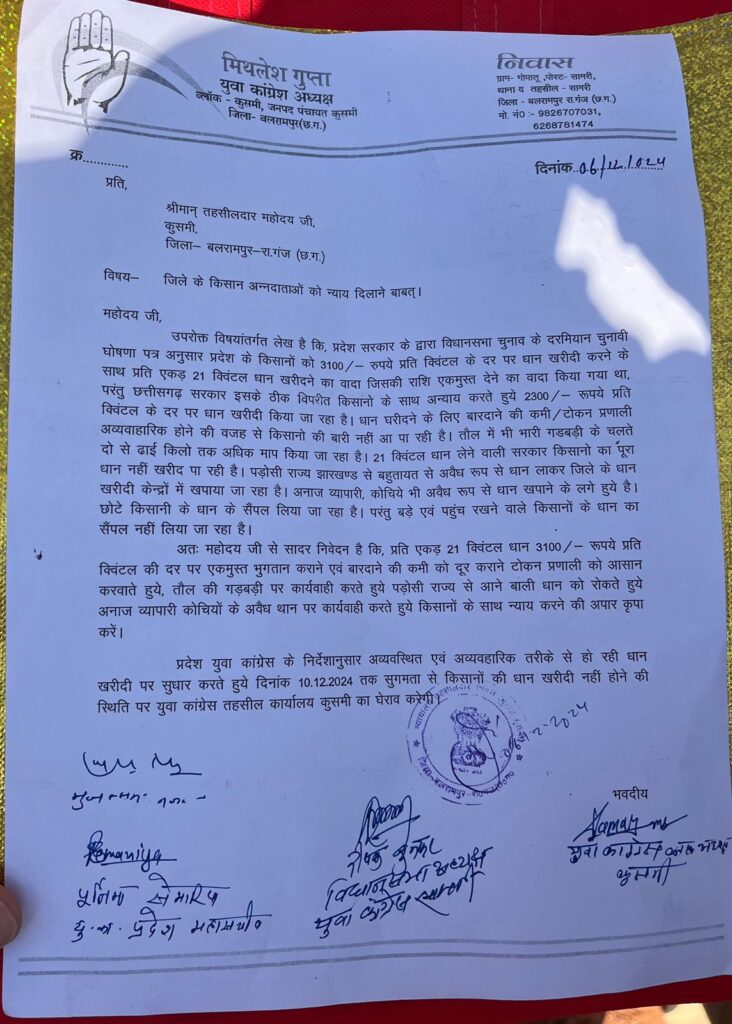 मिथलेश गुप्ता
युवा कांग्रेश अध्यक्ष
ब्लॉक - कुसमी, जनपद पंचायत कुसमी
जिला- बलरामपुर(छ.ग.)
निवास
ग्राम- गोपातू ,पोस्ट- सामरी,
थाना य तहसील - सामरी
जिला - बलरामपुर रा.गंज (छ.ग.)
मो. नं0 :- 9826707031,
6268781474
क्र.............
दिनांक..06/12/2024
प्रति,
श्रीमान् तहसीलदार महोदय जी,
कुसमी,
जिला– बलरामपुर–रा.गंज (छ.ग.)
विषय– जिले के किसान अन्नदाताओं को न्याय दिलाने बाबत्।
महोदय जी,
उपरोक्त विषयांतर्गत लेख है कि, प्रदेश सरकार के द्वारा विधानसभा चुनाव के दरमियान चुनावी
घोषणा पत्र अनुसार प्रदेश के किसानों को 3100/– रुपये प्रति क्विंटल के दर पर धान खरीदी करने के
साथ प्रति एकड़ 21 क्विंटल धान खरीदने का वादा जिसकी राशि एकमुस्त देने का वादा किया गया था,
परंतु छत्तीसगढ़ सरकार इसके ठीक विपरीत किसानो के साथ अन्याय करते हुये 2300/– रूपये प्रति
क्विंटल के दर पर धान खरीदी किया जा रहा है। धान घरीदने के लिए बारदाने की कमी/टोकन प्रणाली
अव्यवाहारिक होने की वजह से किसानो की बारी नहीं आ पा रही है। तौल में भी भारी गडबडी के चलते
दो से ढाई किलो तक अधिक माप किया जा रहा है। 21 क्विंटल धान लेने वाली सरकार किसानो का पूरा
धान नहीं खरीद पा रही है। पड़ोसी राज्य झारखण्ड से बहुतायत से अवैध रूप से धान लाकर जिले के धान
खरीदी केन्द्रों में खपाया जा रहा है। अनाज व्यापारी, कोचिये भी अवैध रूप से धान खपाने के लगे हुये है।
छोटे किसानी के धान के सैंपल लिया जा रहा है। परंतु बड़े एवं पहुंच रखने वाले किसानों के धान का
सैंपल नहीं लिया जा रहा है।
अतः महोदय जी से सादर निवेदन है कि, प्रति एकड़ 21 क्विंटल धान 3100/– रूपये प्रति
क्विंटल की दर पर एकमुस्त भुगतान कराने एवं बारदाने की कमी को दूर कराने टोकन प्रणाली को आसान
करवाते हुये, तौल की गड़बड़ी पर कार्यवाही करते हुये पड़ोसी राज्य से आने बाली धान को रोकते हुये
अनाज व्यापारी कोचियों के अवैध थान पर कार्यवाही करते हुये किसानों के साथ न्याय करने की अपार कृपा
करें।
प्रदेश युवा कांग्रेस के निर्देशानुसार अव्यवस्थित एवं अव्यवहारिक तरीके से हो रही धान
खरीदी पर सुधार करते हुये दिनांक 10.12.2024 तक सुगमता से किसानों की धान खरीदी नहीं होने की
स्थिति पर युवा कांग्रेस तहसील कार्यालय कुसमी का घेराव करेगी।
भवदीय
युवा कांग्रेस ब्लाक अध्यक्ष
कुसमी
विधानसभा अध्यक्ष
युवा कांग्रेस सामरी
पूर्णिमा
यु. कां. प्रदेश महासचिव